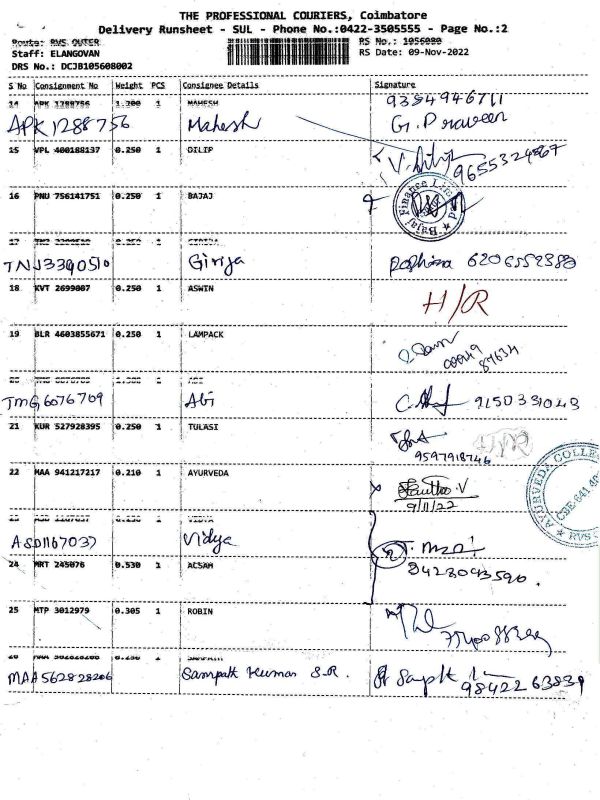 THE PROFESSIONAL COURIERS, Coimbatore
Delivery Runsheet - SUL - Phone No.:0422-3505555 - Page No.:2
Route: RVS OUTER RS No.: 1056080
Staff: ELANGOVAN RS Date: 09-Nov-2022
DRS No.: DCJB105608002
S No Consignment No Weight PCS Consignee Details Signature
14 APK 1288756 1.200 1 MAHESH 9384946711
APK1288756 Mahesh G. Praveen
15 VPL 400188137 0.250 1 DILIP V. Dilip
9655324867
16 PNU 756141751 0.250 1 BAJAJ Bajaj Finance Limited
17
TNJ3390510 Girija 6206552380
18 KVT 2699007 0.250 1 ASWIN H/R
19 BLR 4603855671 0.250 1 LAMPACK
87634
TMG6076709 Abi 9150331043
21 KUR 527928395 0.250 1 TULASI
9597918746
22 MAA 941217217 0.210 1 AYURVEDA
9/11/22
AYURVEDA COLLEGE
RVS
VIDYA
ASD1167037 Vidya
24 MRT 245076 0.530 1 ACSAM
8428043590.
25 MTP 3012979 0.305 1 ROBIN
MAA562828206 Sampath Kumar S.R.
9842263839